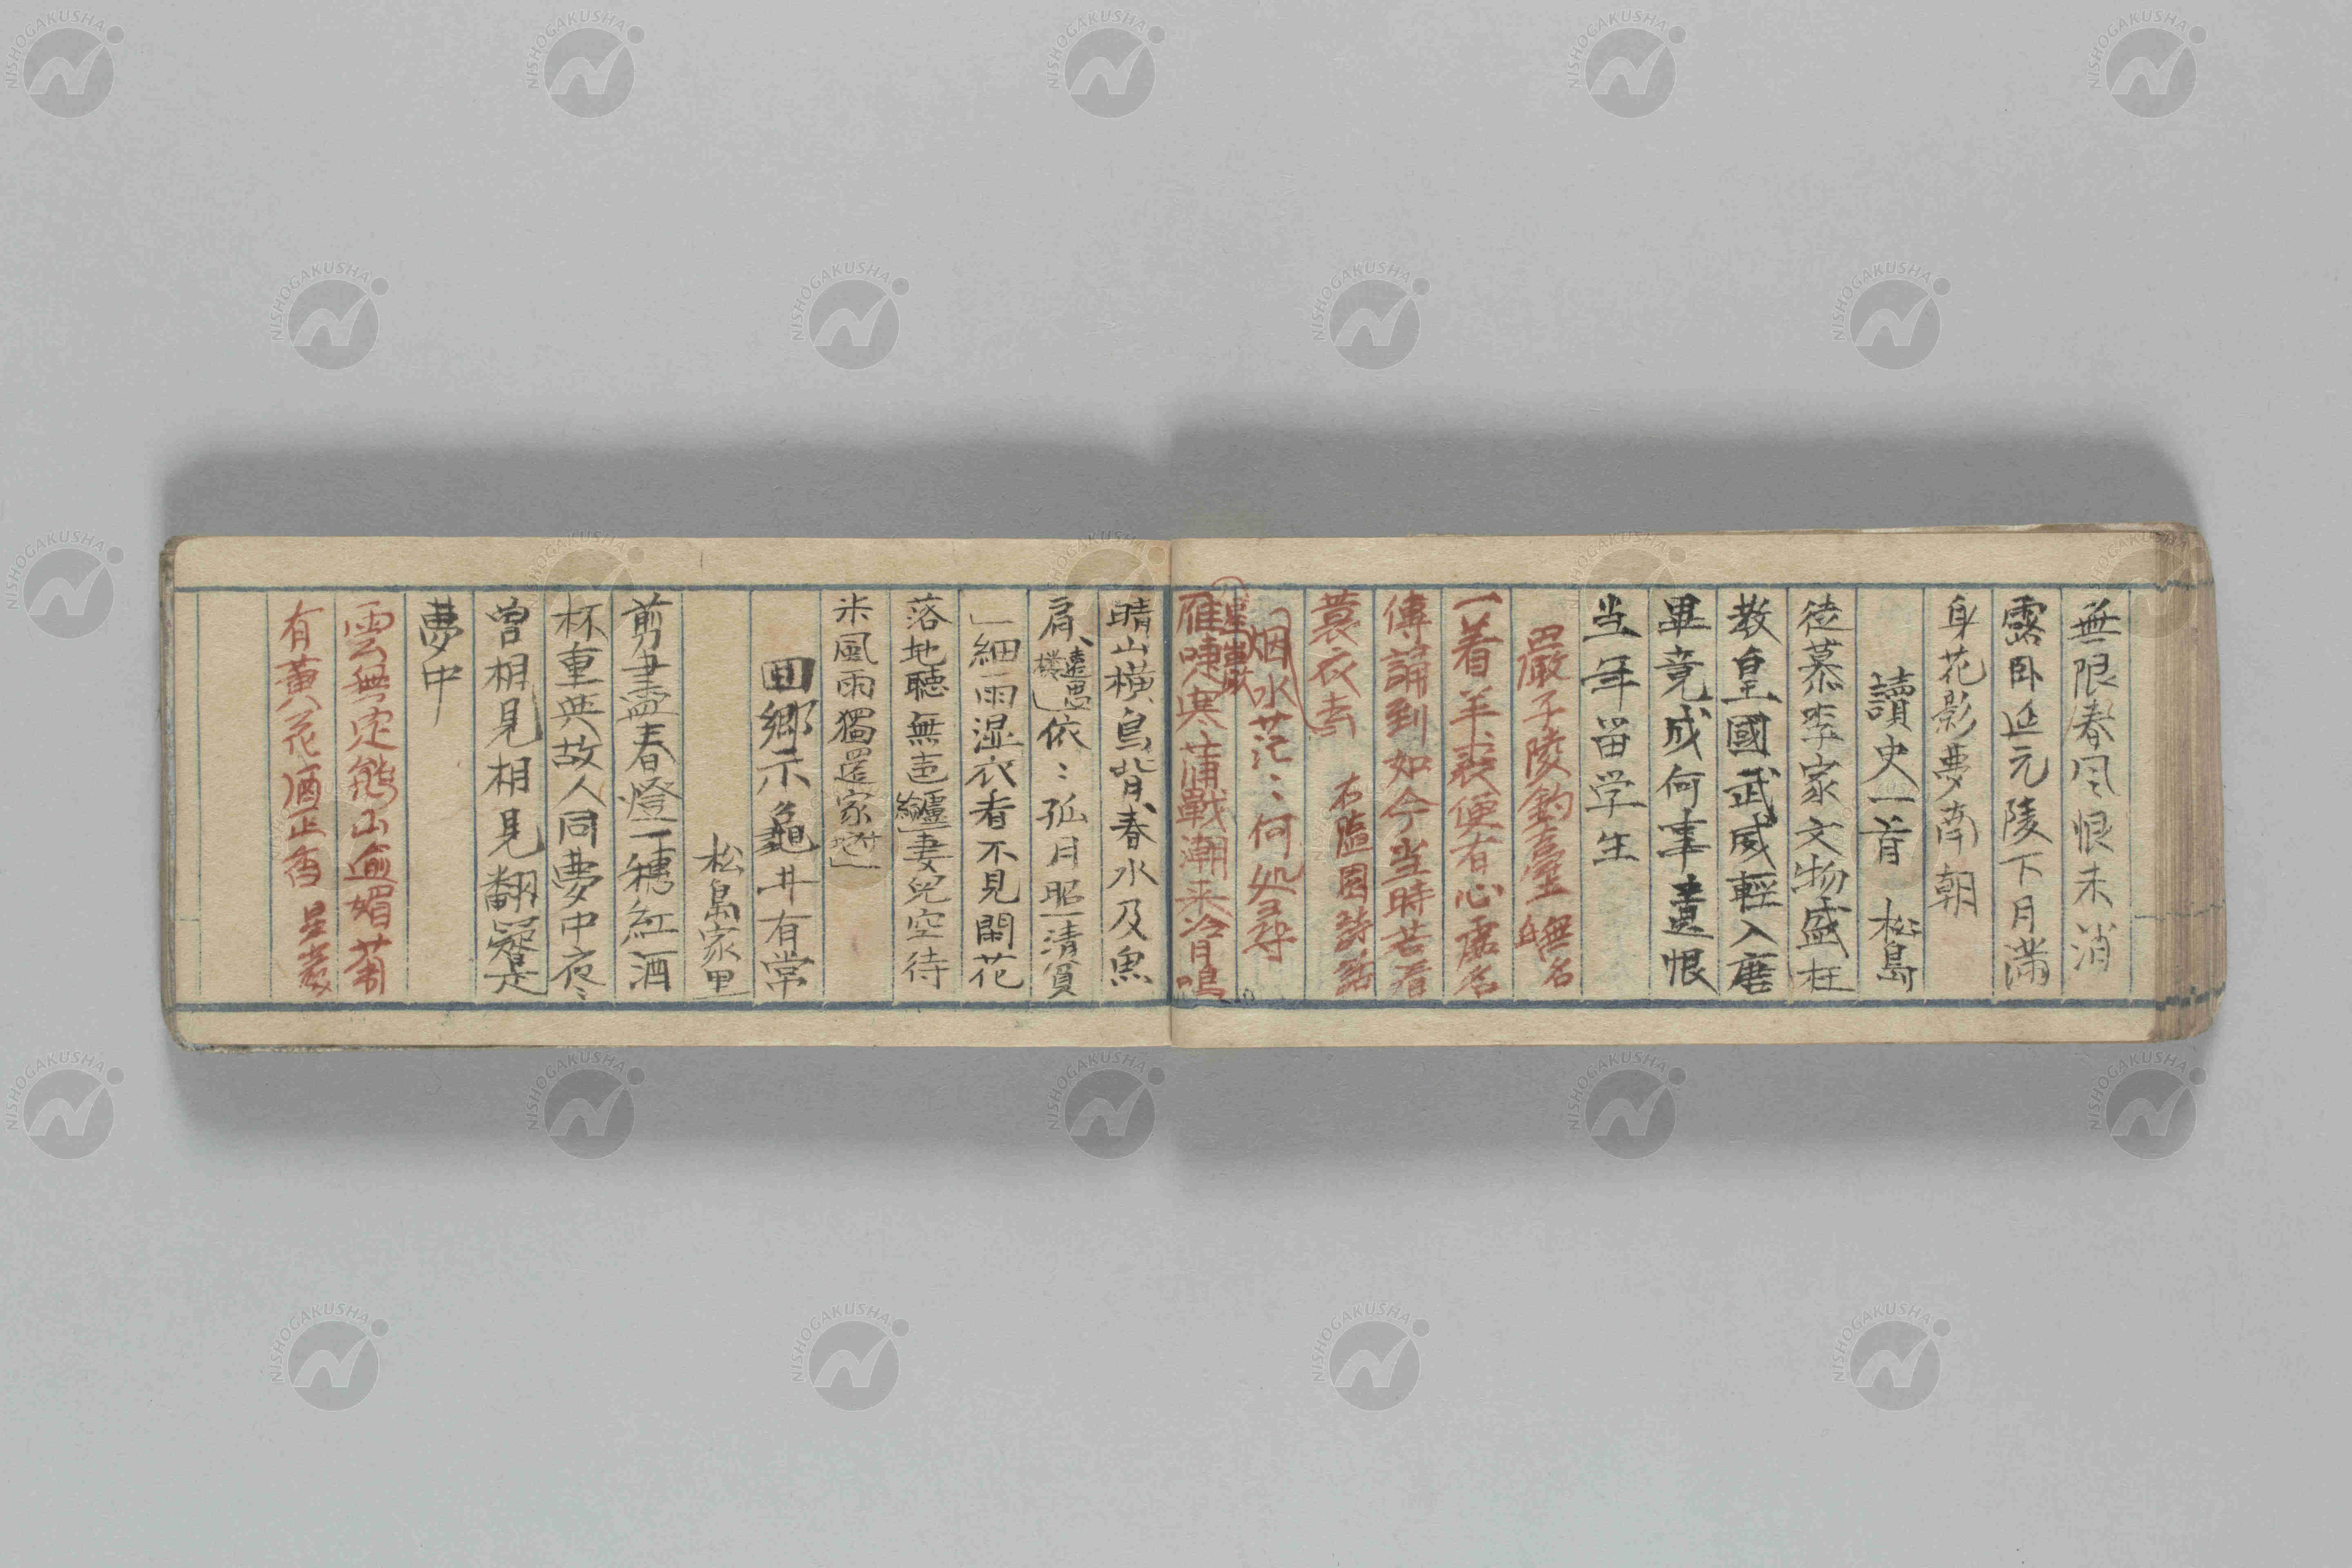 無限春风恨未消
露臥延元陵下月滿
身花影夢南朝
讀史一首 松島
徒慕李家文物盛枉
教皇國武威輕入唐
畢竟成何事遺恨
当年留学生
嚴子陵釣臺 無名
一着羊裘便有心虚名
傳誦到如今当時若着
蓑衣去 右随園詩話
烟水茫〻何処尋
雁啼寒蒲戰潮来冷月鳴
晴山横鳥背、春水及魚
肩、遠思依〻孤月昭清貧
」細雨湿衣看不見閑花
落地聴無声 妻兒空待
米風雨獨還家
回郷示龜井有常
松島家里
剪盡春燈一穗紅酒
杯重與故人同夢中夜〻
曽相見相見翻疑是
夢中
雲無定態山逾媚菊
有黄花酒正香 星巖
NISHOGAKUSHA